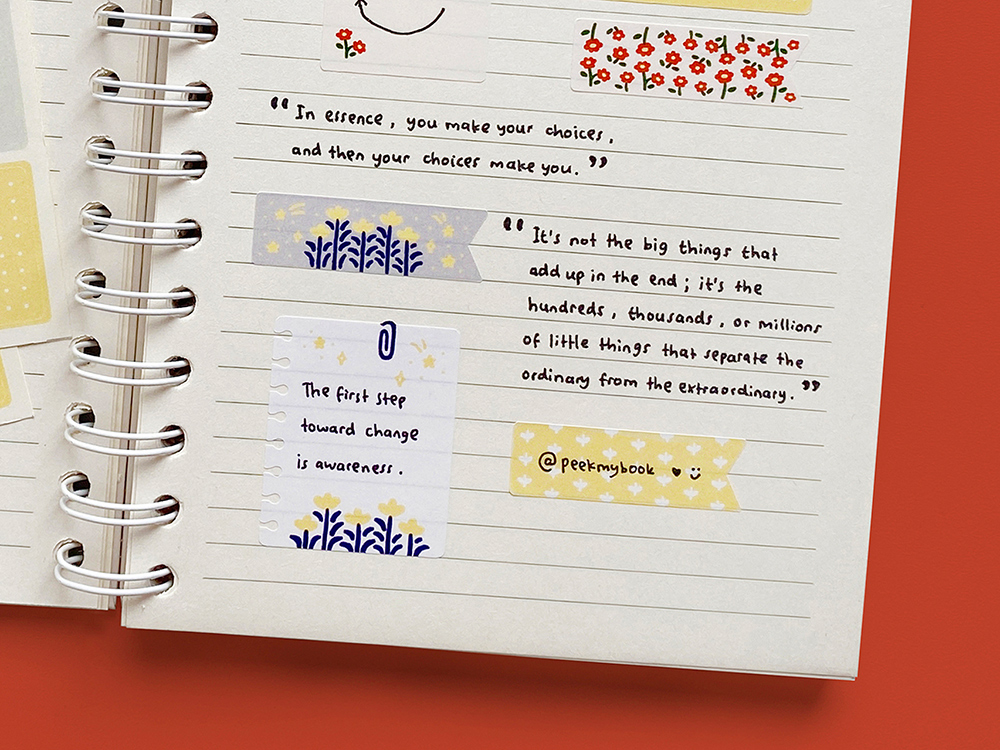 “In essence, you make your choices,
and then your choices make you.”
“It's not the big things that
add up in the end; it's the
hundreds, thousands, or millions
of little things that separate the
ordinary from the extraordinary.”
The first step
toward change
is awareness.
@peekmybook ♥ :)